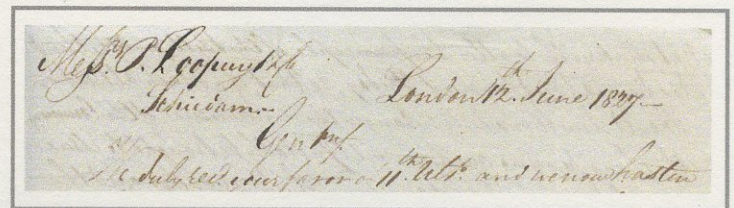 Messrs. P. Loopuyt & Co
Schiedam
London 12th. June 1827
Gentn
We duly recd. your favor of 11th. Ulto. and we now hasten